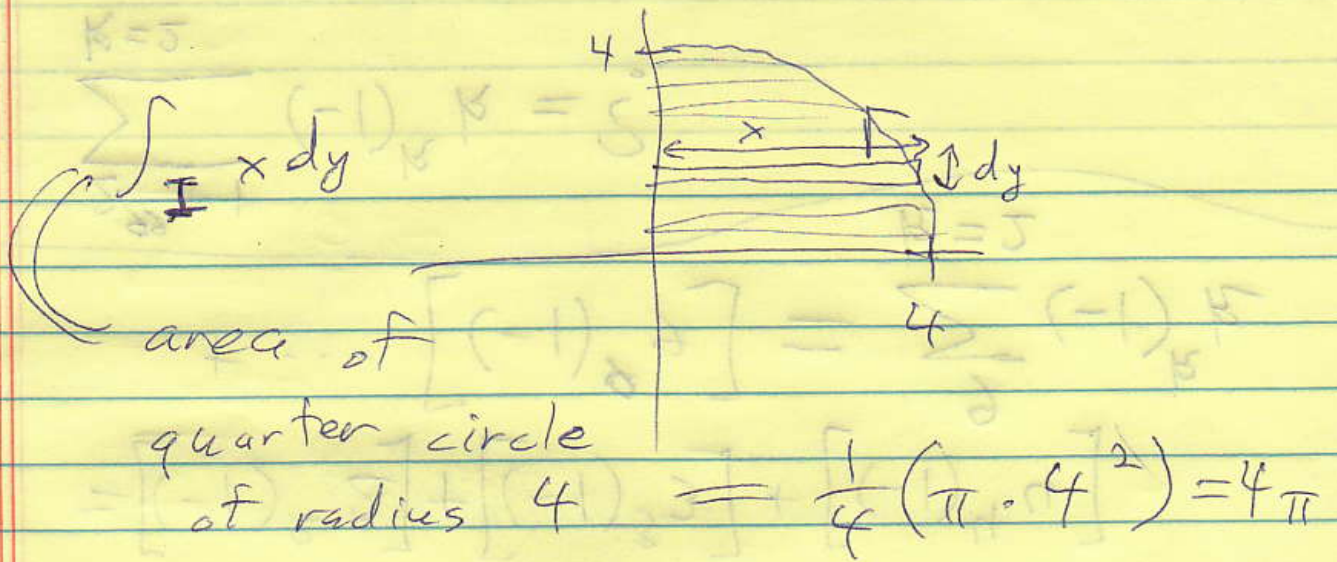 4
x
∫_I x dy
dy
4
area of
quarter circle
of radius 4 = 1/4 (π · 4²) = 4π